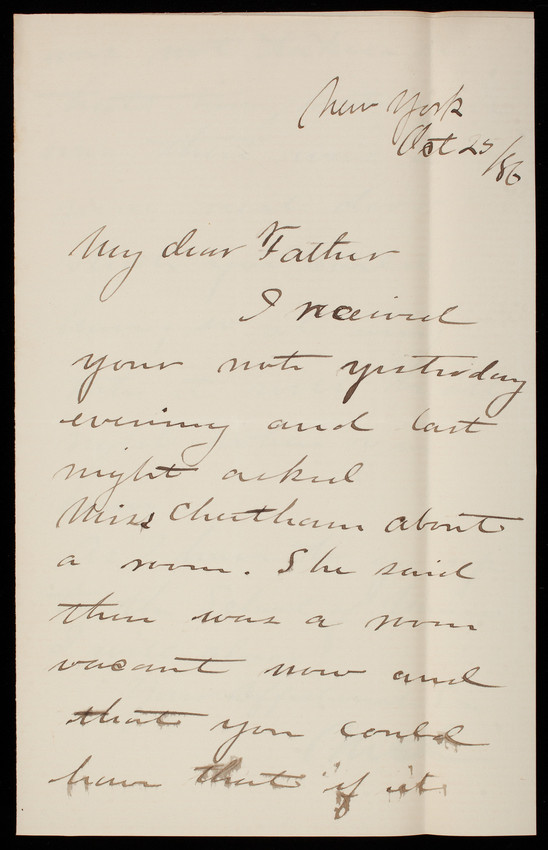 New York
Oct 25/86
My dear Father
I received
your note yesterday
evening and last
night asked
Miss Cheatham about
a room. She said
there was a room
vacant now and
that you could
have that if it